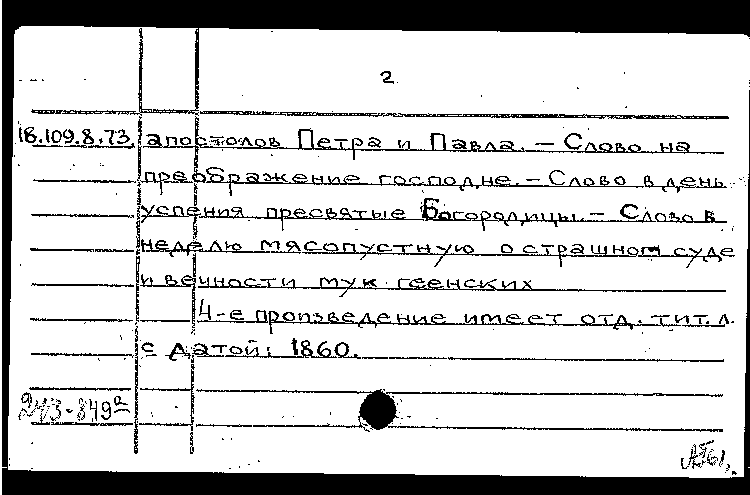 2
18.109.8.73. апостолов Петра и Павла. – Слово на
преображение господне. – Слово в день
успения пресвятые Богородицы. – Слово в
неделю мясопустную о страшном суде
и вечности мук геенских
4-е произведение имеет отд. тит. л.
с датой: 1860.
243-849а